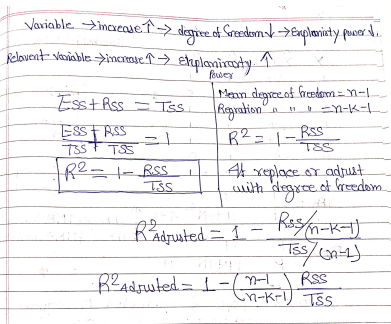 Variable → increase ↑ → degree of freedom ↓ → Explaniaty power ↓.
Relavent variable → increase ↑ → Explanimraty ↑
Power
ESS + RSS = TSS
ESS/TSS + RSS/TSS = 1
R² = 1 - RSS/TSS
Mean degree of freedom = n-1
Regration " " " = n-k-1
R² = 1 - RSS/TSS
If replace or adjust
with degree of freedom
R² Adjusted = 1 - (RSS/(n-k-1))/(TSS/(n-1))
R² Adjusted = 1 - (n-1/n-k-1) RSS/TSS